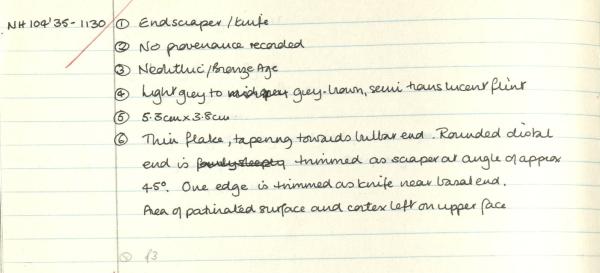 NH 104'35-1130 ① Endscraper/knife
② No provenance recorded
③ Neolithic/Bronze Age
④ Light grey to grey-brown, semi translucent flint
⑤ 5.3cm x 3.8cm
⑥ Thin flake, tapering towards bulbar end. Rounded distal
end is trimmed as scraper at angle of approx
45°. One edge is trimmed as knife near basal end.
Area of patinated surface and cortex left on upper face
f3